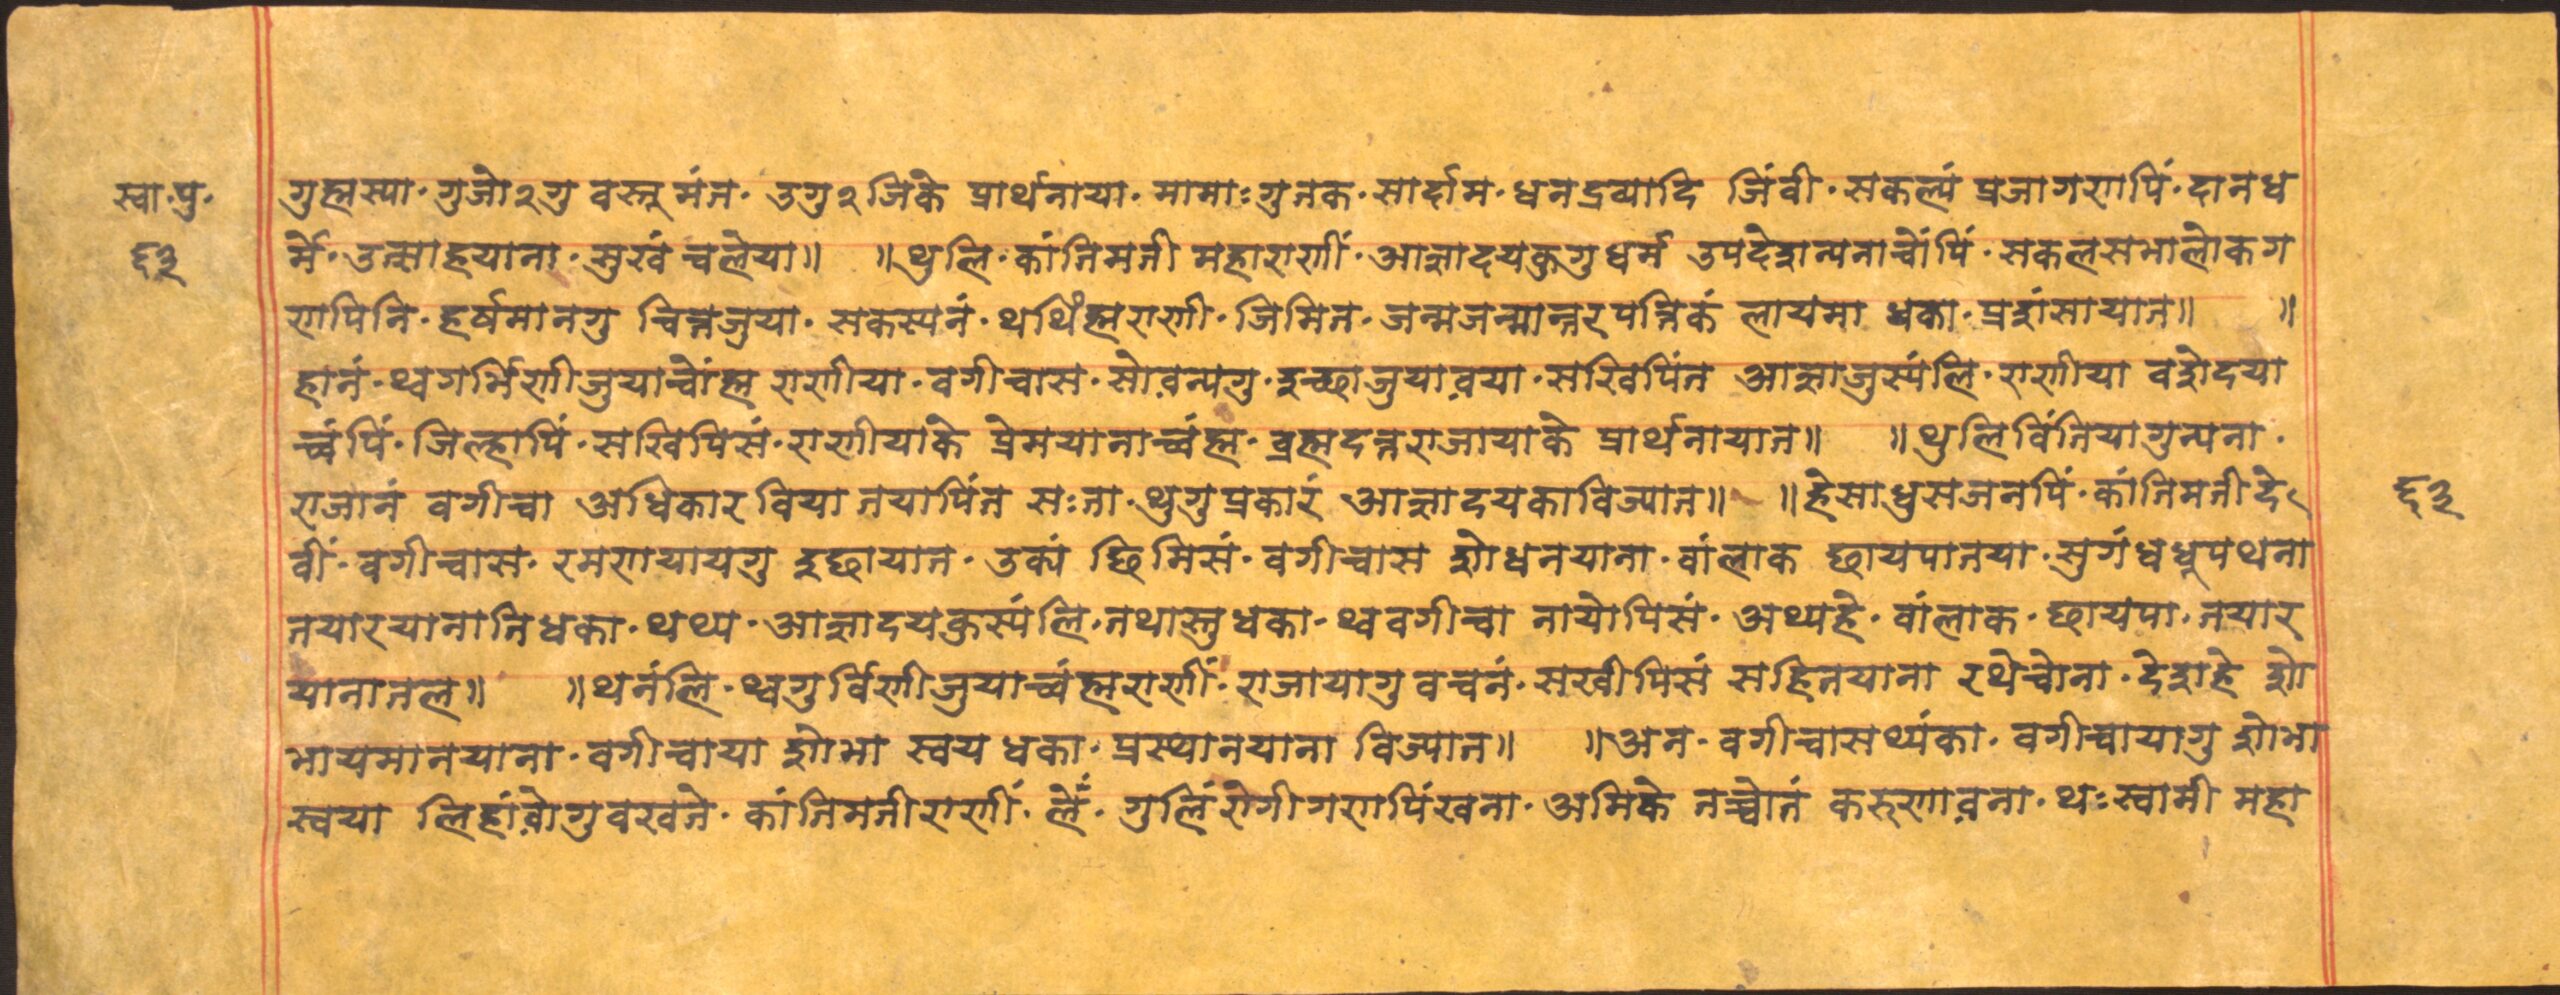 स्वा·पु·
६३
गुह्मस्या·गुजो२गु वस्तू मंत·उगु२जिके प्रार्थनाया·मामाःगुतक·सार्दाम·धनद्रव्यादि जिंवी·सकल्यं प्रजागणपिं·दानध
र्मे·उत्साहयाना·सुखं च्वलेया॥ ॥थुलि·कांतिमती महाराणीं·आज्ञादयकुगुधर्म उपदेशन्यनाचोंपिं·सकलसभालोकग
णपिनि·हर्षमानगु चित्तजुया·सकस्यनं·थथिंह्मराणी·जिमित·जन्मजन्मान्तरपत्तिकं लायमा धका·प्रशंसायात॥ ॥
हानं·थ्वगर्भिणीजुयाचोंह्म राणीया·वगीचास·सोव़न्यगु·इच्छाजुयाव़या·सखिपिंत आज्ञाजुस्यंलि·राणीया वशेदया
च्वंपिं·जिल्हापिं·सखिपिसं·राणीयाके प्रेमयानाच्वंह्म·ब्रह्मदत्तराजायाके प्रार्थनायात॥ ॥थुलिविंतियागुन्यना·
राजानं वगीचा अधिकार विया तयापिंत सःता·थुगुप्रकारं आज्ञादयकाविज्यात॥ ॥हेसाधुसजनपिं·कांतिमतीदे
६३
वीं·वगीचास·रमणयायगु इछायात·उक्यं छिमिसं·वगीचास शोधनयाना·वांलाक छायपातया·सुगंधधूपथना
तयारयानाति धका·थथ्य·आज्ञादयकुस्यंलि·तथास्तुधका·थ्ववगीचा नायोपिसं·अथ्यहे·वांलाक·छायपा·तयार
यानातल॥ ॥थनंलि·थ्वगुर्विणीजुयाच्वंह्मराणीं·राजायागु वचनं·सखीपिसं सहितयाना रथेचोना·देशहे शो
भायमानयाना·वगीचाया शोभा स्वय धका·प्रस्थानयाना विज्यात॥ ॥अन·वगीचासथ्यंका·वगीचायागु शोभा
स्वया लिहांव़ोगुवखते·कांतिमतीराणीं·लें·गुलिंरोगीगणपिंखना·अमिके तच्वोतं करुणाव़ना·थःस्वामी महा